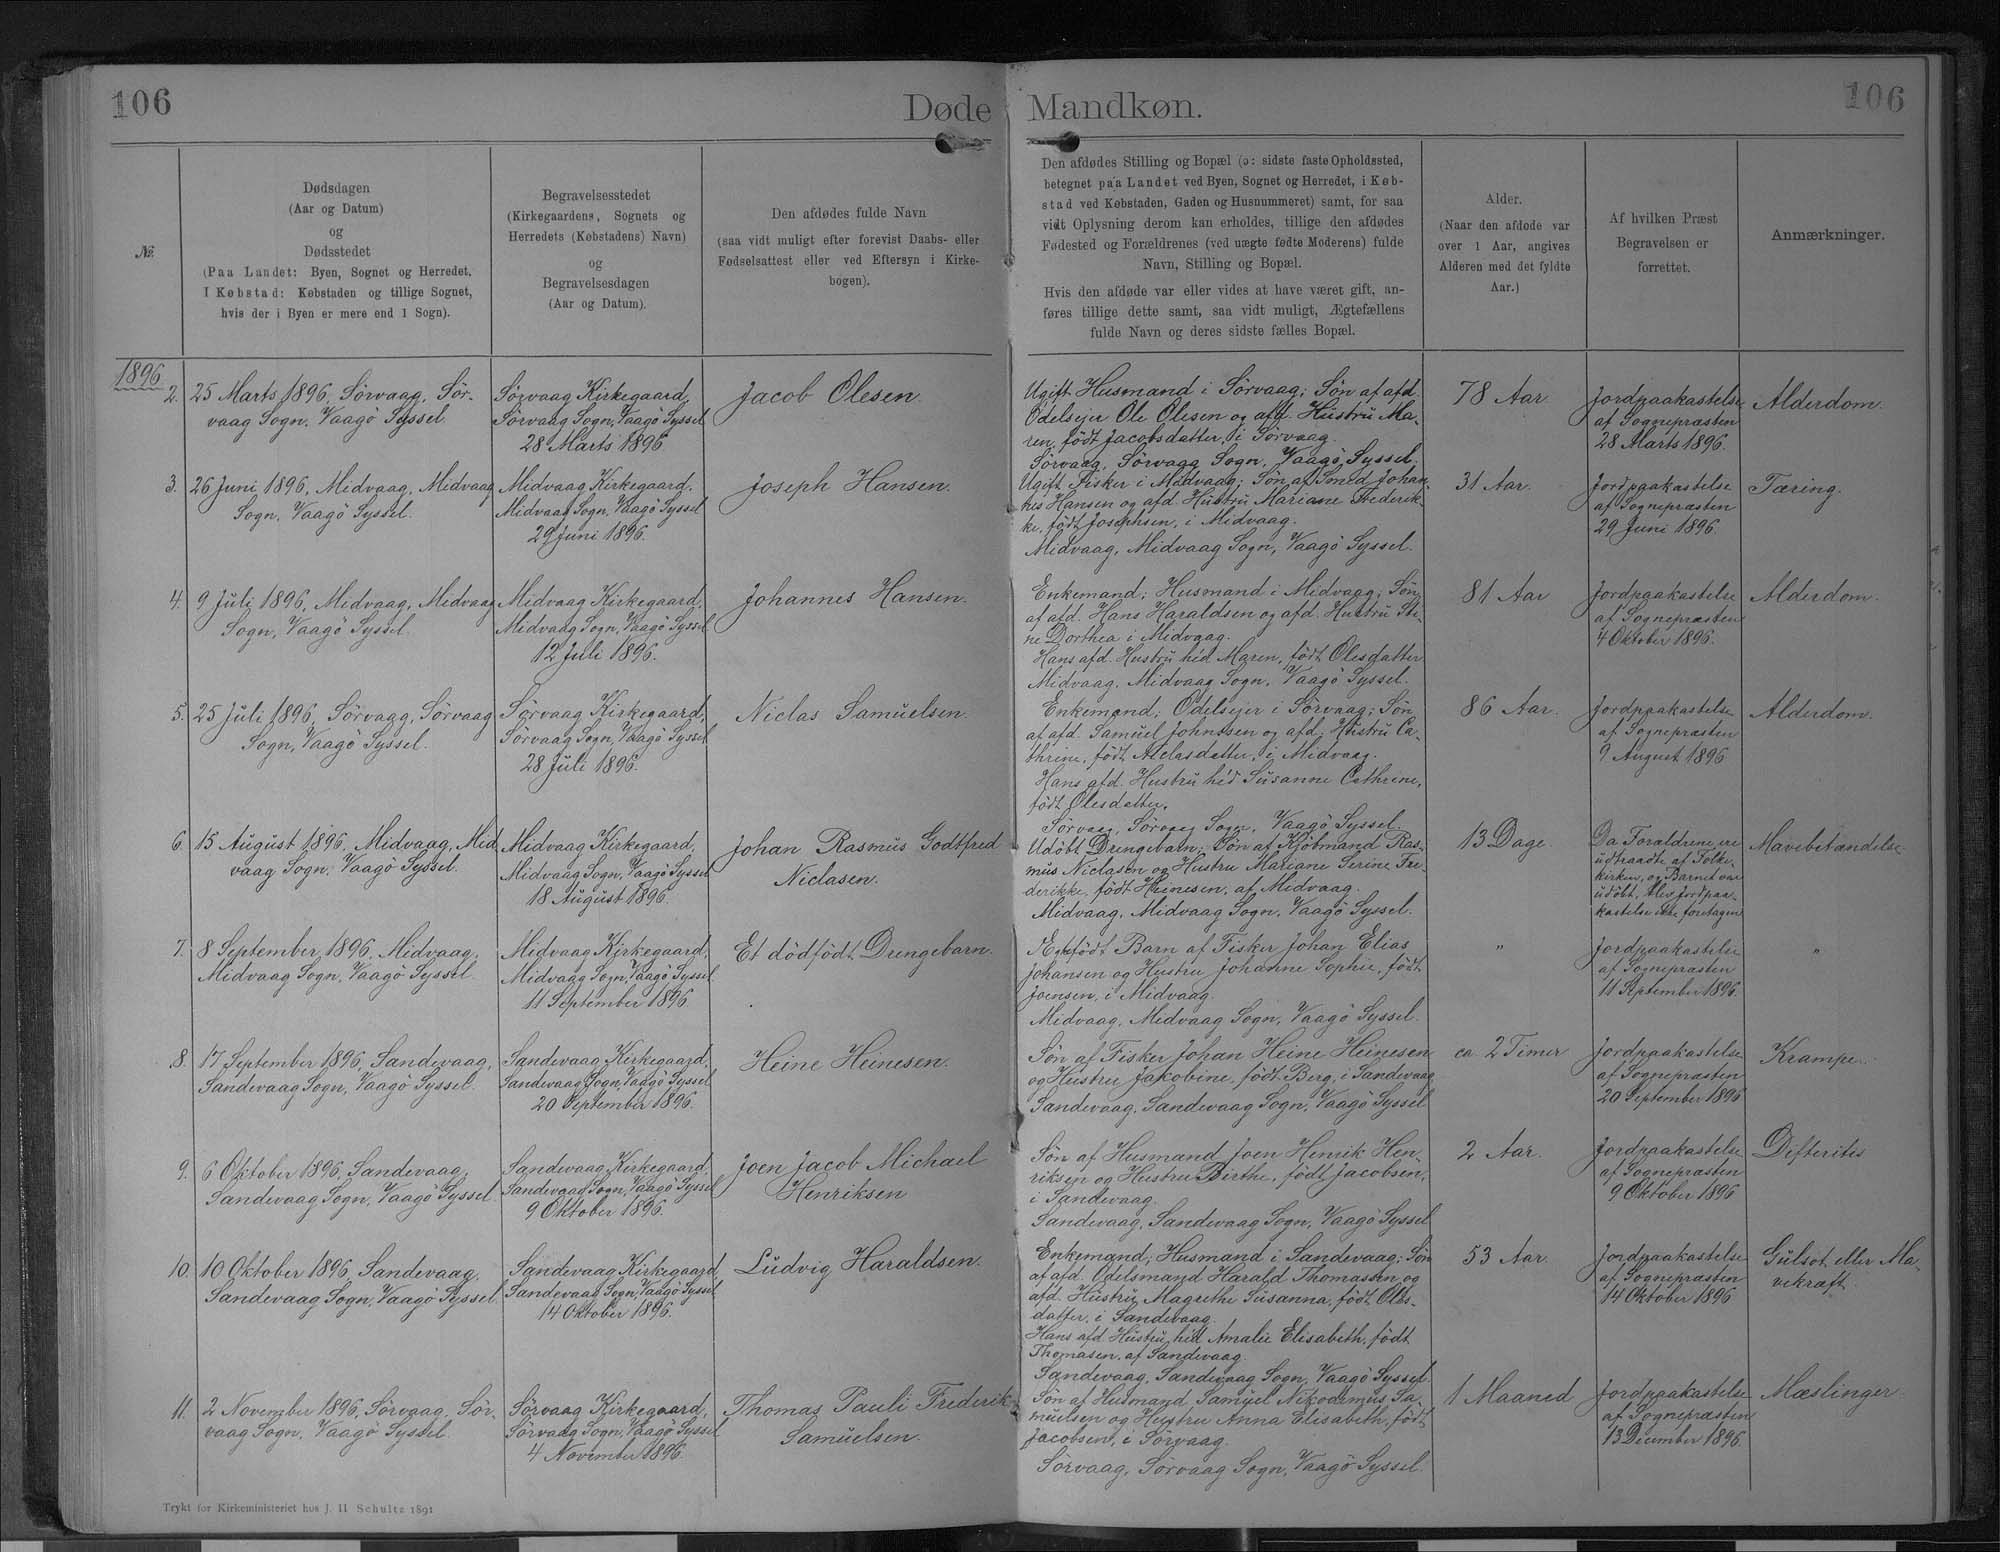 106
Døde Mandkøn.
106
№
Dødsdagen
(Aar og Datum)
og
Dødsstedet
(Paa Landet: Byen, Sognet og Herredet.
I Købstad: Købstaden og tillige Sognet,
hvis der i Byen er mere end 1 Sogn).
Begravelsesstedet
(Kirkegaardens, Sognets og
Herredets (Købstadens) Navn)
og
Begravelsesdagen
(Aar og Datum).
Den afdødes fulde Navn
(saa vidt muligt efter forevist Daabs- eller
Fødselsattest eller ved Eftersyn i Kirke-
bogen).
Den afdødes Stilling og Bopæl (ɔ: sidste faste Opholdssted,
betegnet paa Landet ved Byen, Sognet og Herredet, i Køb-
stad ved Købstaden, Gaden og Husnummeret) samt, for saa
vidt Oplysning derom kan erholdes, tillige den afdødes
Fødested og Forældrenes (ved uægte fødte Moderens) fulde
Navn, Stilling og Bopæl.
Hvis den afdøde var eller vides at have været gift, an-
føres tillige dette samt, saa vidt muligt, Ægtefællens
fulde Navn og deres sidste fælles Bopæl.
Alder.
(Naar den afdøde var
over 1 Aar, angives
Alderen med det fyldte
Aar.)
Af hvilken Præst
Begravelsen er
forrettet.
Anmærkninger.
1896
2.
25 Marts 1896, Sörvaag, Sör-
vaag Sogn, Vaagö Syssel
Sörvaag Kirkegaard,
Sörvaag Sogn, Vaagö Syssel
28 Marts 1896.
Jacob Olesen.
Ugift Husmand i Sörvaag; Sön af afd.
Odelsejer Ole Olesen og afd. Hustru Ma-
ren, födt Jacobsdatter, i Sörvaag.
Sörvaag, Sörvaag Sogn, Vaagö Syssel.
78 Aar
Jordpaakastelse
af Sognepræsten
28 Marts 1896.
Alderdom.
3.
26 Juni 1896, Midvaag, Midvaag
Sogn, Vaagö Syssel.
Midvaag Kirkegaard,
Midvaag Sogn, Vaagö Syssel
29 Juni 1896.
Joseph Hansen.
Ugift Fisker i Midvaag; Sön af Smed Johan-
nes Hansen og afd. Hustru Mariane Frederik-
ke, födt Josephsen, i Midvaag.
Midvaag, Midvaag Sogn, Vaagö Syssel.
31 Aar.
Jordpaakastelse
af Sognepræsten
29 Juni 1896.
Tæring.
4.
9 Juli 1896, Midvaag, Midvaag
Sogn, Vaagö Syssel.
Midvaag Kirkegaard,
Midvaag Sogn, Vaagö Syssel
12 Juli 1896.
Johannes Hansen.
Enkemand; Husmand i Midvaag; Sön
af afd. Hans Haraldsen og afd. Hustru Sti-
ne Dorthea i Midvaag.
Hans afd. Hustru héd Maren, födt Olesdatter
Midvaag, Midvaag Sogn, Vaagö Syssel.
81 Aar
Jordpaakastelse
af Sognepræsten
4 Oktober 1896.
Alderdom.
5.
25 Juli 1896, Sörvaag, Sörvaag
Sogn, Vaagö Syssel.
Sörvaag Kirkegaard,
Sörvaag Sogn, Vaagö Syssel
28 Juli 1896.
Niclas Samuelsen.
Enkemand; Odelsejer i Sörvaag; Sön
af afd. Samuel Johnssen og afd. Hustru Ca-
thrine, födt Niclasdatter, i Midvaag.
Hans afd. Hustru héd Susanne Cathrine,
födt Olesdatter.
Sörvaag, Sörvaag Sogn, Vaagö Syssel.
86 Aar.
Jordpaakastelse
af Sognepræsten
9 August 1896
Alderdom.
6.
15 August 1896, Midvaag, Mid
vaag Sogn, Vaagö Syssel.
Midvaag Kirkegaard,
Midvaag Sogn, Vaagö Syssel
18 August 1896.
Johan Rasmus Godtfred
Niclasen.
Udöbt Drengebarn; Sön af Kjöbmand Ras-
mus Niclasen og Hustru Mariane Serine Fre-
derikke, födt Heinesen, af Midvaag.
Midvaag, Midvaag Sogn, Vaagö Syssel.
13 Dage.
Da Forældrene ere
udtraadte af Folke-
kirken, og Barnet var
udöbt, blev Jordpaa-
kastelse ikke foretagen
Mavebetændelse
7.
8 September 1896, Midvaag,
Midvaag Sogn, Vaagö Syssel.
Midvaag Kirkegaard,
Midvaag Sogn, Vaagö Syssel.
11 September 1896.
Et dödfödt Drengebarn.
Ægtefödt Barn af Fisker Johan Elias
Johansen og Hustru Johanne Sophie, födt
Joensen, i Midvaag.
Midvaag, Midvaag Sogn, Vaagö Syssel.
"
Jordpaakastelse
af Sognepræsten
11 September 1896.
"
8.
17 September 1896, Sandevaag,
Sandevaag Sogn, Vaagö Syssel.
Sandevaag Kirkegaard,
Sandevaag Sogn, Vaagö Syssel
20 September 1896.
Heine Heinesen.
Sön af Fisker Johan Heine Heinesen
og Hustru Jakobine, födt Berg, i Sandevaag
Sandevaag, Sandevaag Sogn, Vaagö Syssel
ca. 2 Timer
Jordpaakastelse
af Sognepræsten
20 September 1896
Krampe.
9.
6 Oktober 1896, Sandevaag,
Sandevaag Sogn, Vaagö Syssel.
Sandevaag Kirkegaard,
Sandevaag Sogn, Vaagö Syssel
9 Oktober 1896.
Joen Jacob Michael
Henriksen
Sön af Husmand Joen Henrik Hen-
riksen og Hustru Birthe, födt Jacobsen,
i Sandevaag.
Sandevaag, Sandevaag Sogn, Vaagö Syssel
2 Aar.
Jordpaakastelse
af Sognepræsten
9 Oktober 1896
Difteritis
10.
10 Oktober 1896, Sandevaag,
Sandevaag Sogn, Vaagö Syssel.
Sandevaag Kirkegaard
Sandevaag Sogn, Vaagö Syssel
14 Oktober 1896.
Ludvig Haraldsen.
Enkemand; Husmand i Sandevaag; Sön
af afd. Odelsmand Harald Thomassen og
afd. Hustru Magrethe Susanna, födt Oles-
datter, i Sandevaag.
Hans afd. Hustru héd Amalie Elisabeth, födt
Thomasen, af Sandevaag.
Sandevaag, Sandevaag Sogn, Vaagö Syssel.
53 Aar.
Jordpaakastelse
af Sognepræsten
14 Oktober 1896
Gulsot eller Ma-
vekræft.
11.
2 November 1896, Sörvaag, Sör-
vaag Sogn, Vaagö Syssel.
Sörvaag Kirkegaard,
Sörvaag Sogn, Vaagö Syssel
4 November 1896.
Thomas Pauli Frederik
Samuelsen.
Sön af Husmand Samuel Nikodemus Sa-
muelsen og Hustru Anna Elisabeth, födt
Jacobsen, i Sörvaag.
Sörvaag, Sörvaag Sogn, Vaagö Syssel.
1 Maaned
Jordpaakastelse
af Sognepræsten
13 December 1896.
Mæslinger
Trykt for Kirkeministeriet hos J. H Schultz 1891